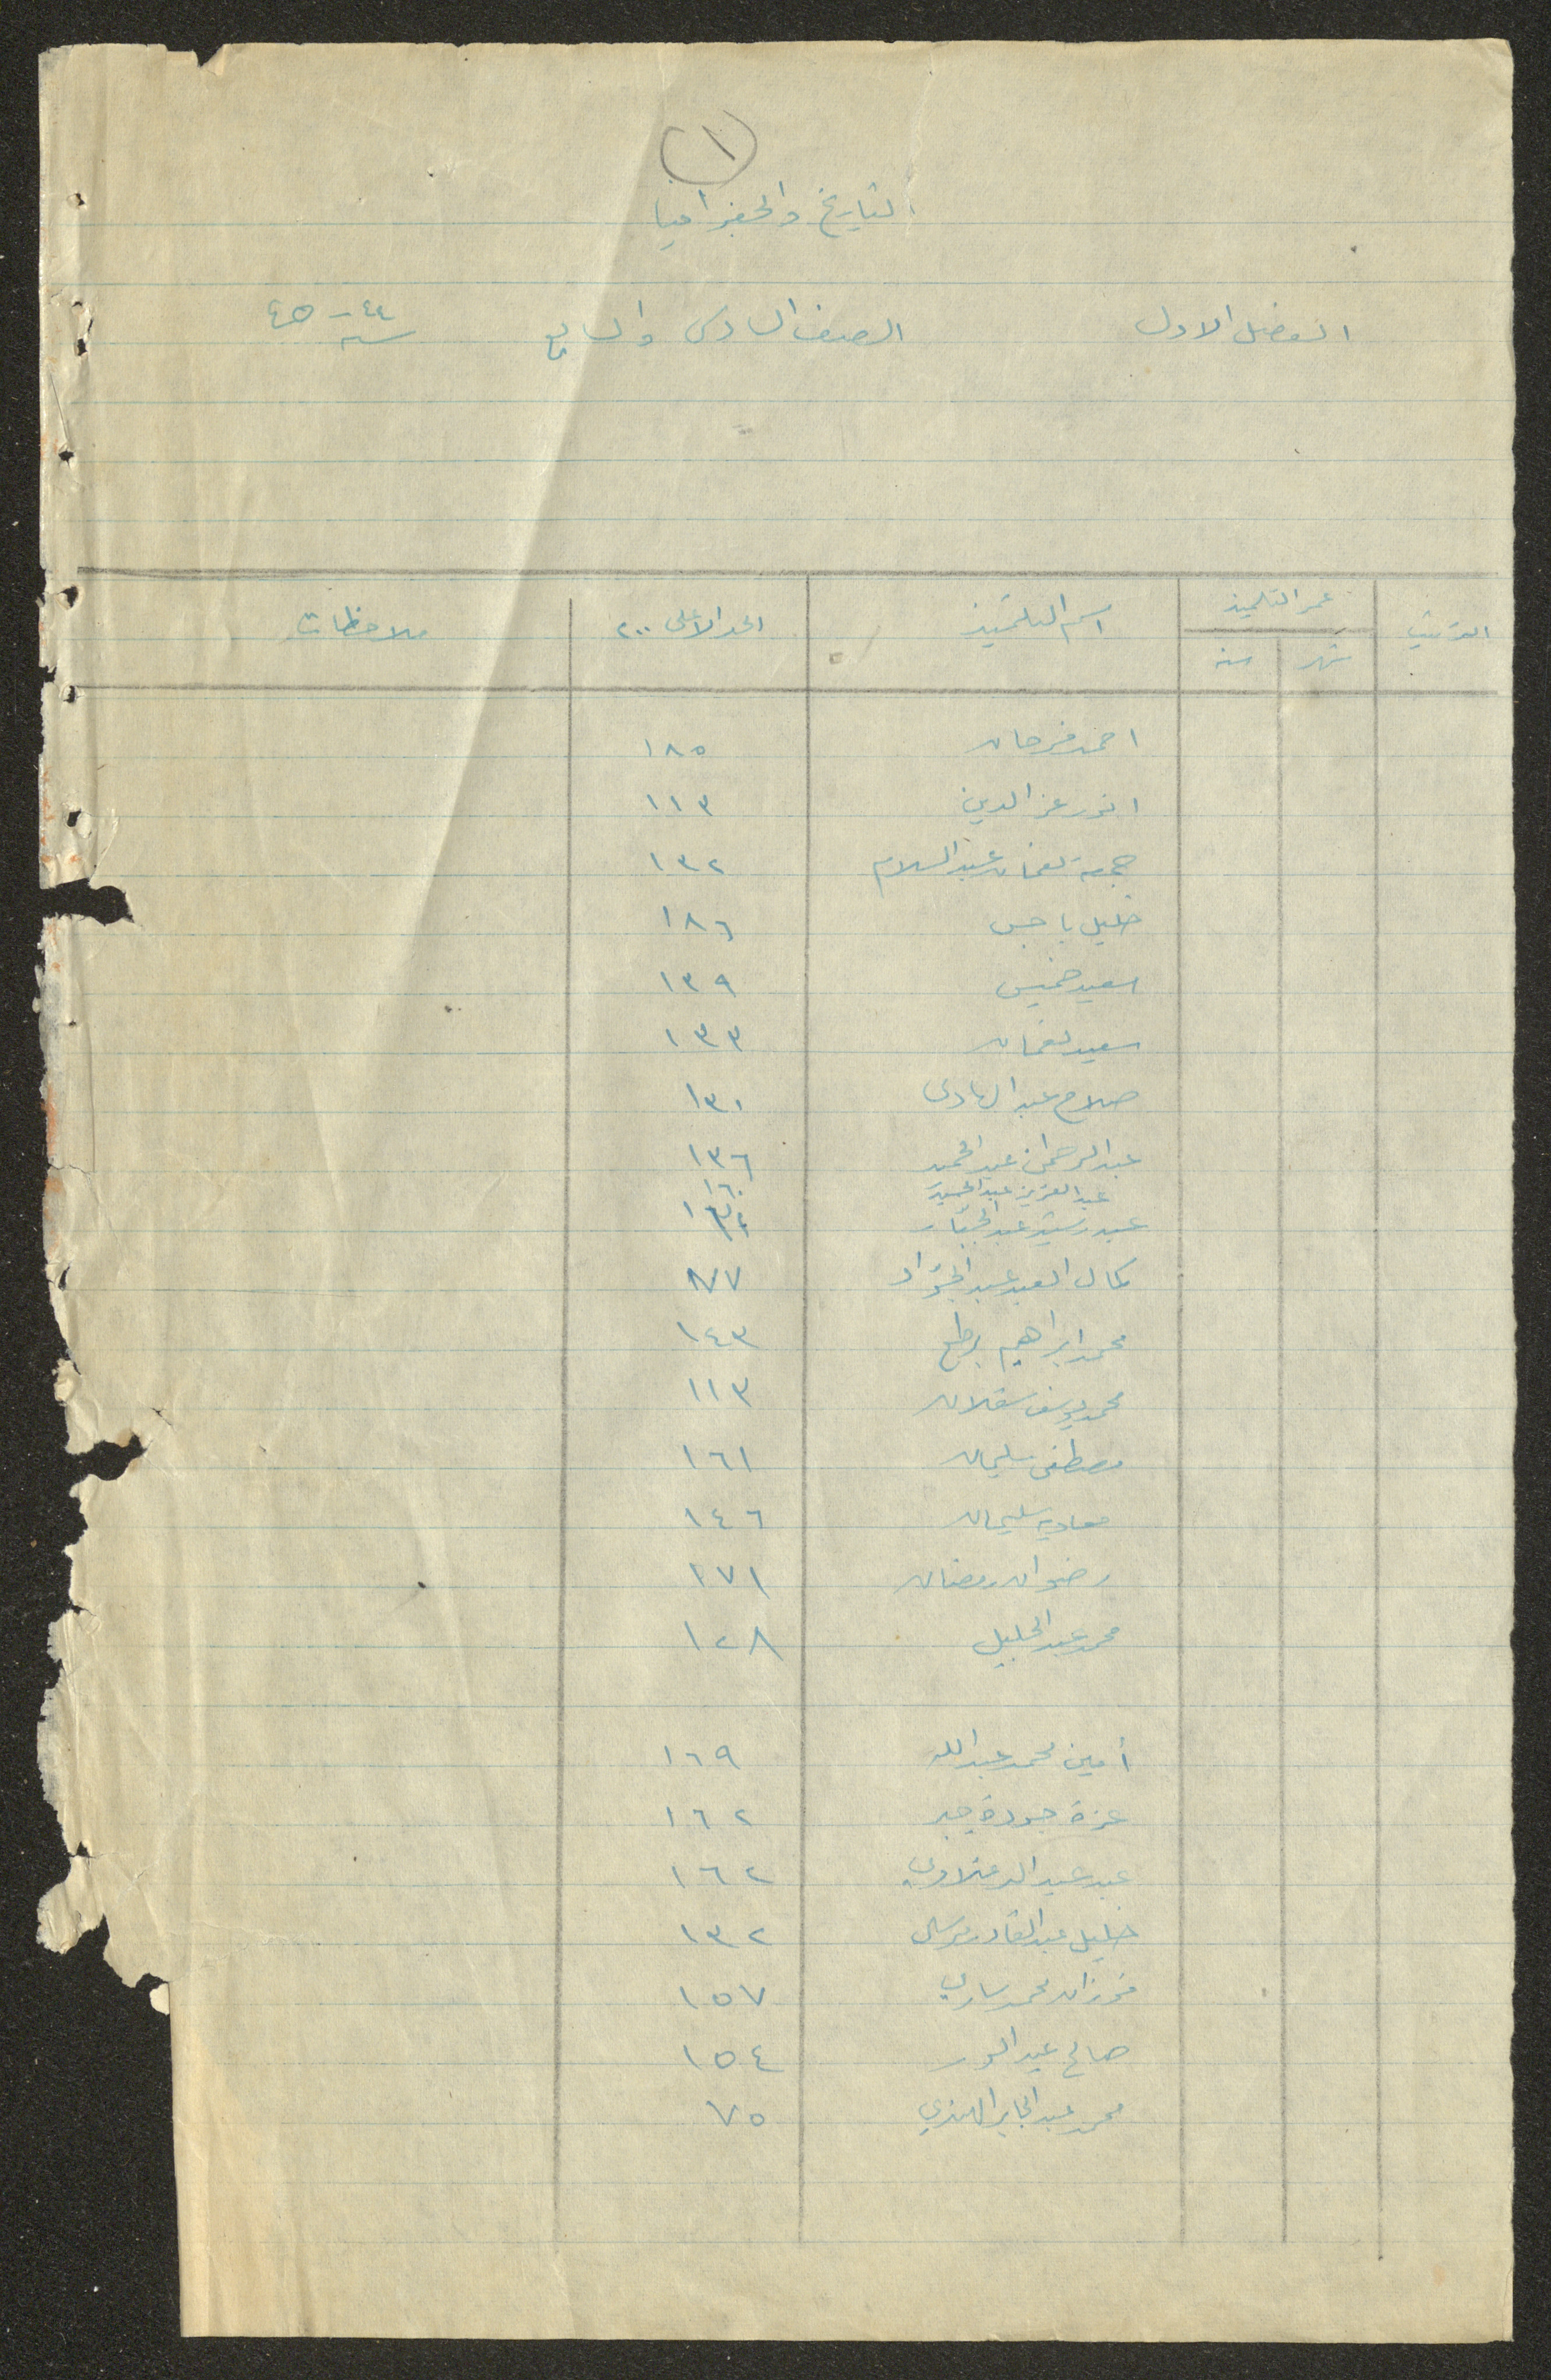 (١)
التاريخ والجغرافيا
الفصل الاول الصف السادس والسابع سنة ٤٤ - ٤٥
الترتيب عمر التلميذ اسم التلميذ الحد الاعلى ٢٠٠ ملاحظات
شهر سنة
احمد فرحان ١٨٥
انور عز الدين ١١٣
جمعة نعمان عبد السلام ١٣٢
خليل ياجس ١٨٦
سعيد خميس ١٣٩
سعيد نعمان ١٣٣
صلاح عبد الهادى ١٣١
عبد الرحمن عبد الحميد ١٣٦
عبد العزيز عبد الحميد ١٦٠
عبد رشيد عبد الجبار
كمال العبد عبد الجواد ٨٧
محمد ابراهيم ١٤٣
محمد يوسف سقلان ١١٣
مصطفى سليمان ١٦١
معاوية سليمان ١٤٦
رضوان رمضان ١٧١
محمد عبد الجليل ١٢٨
أمين محمد عبد الله ١٦٩
عزة جودة جبر ١٦٢
عبد عيد ١٦٢
خليل عبد القادر مرسى ١٣٢
فوزان محمد ساري ١٥٧
صالح عيد ١٥٤
محمد عبد الجابر الهندي ٧٥